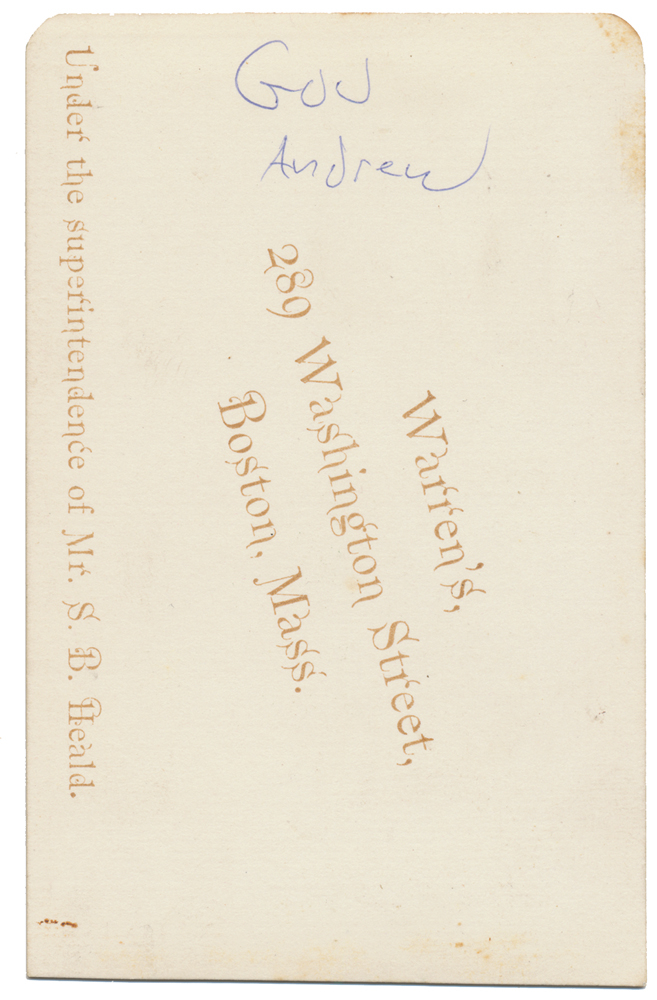 Gov
Andrew
Warren's,
289 Washington Street,
Boston, Mass.
Under the superintendence of Mr. S. B. Heald.